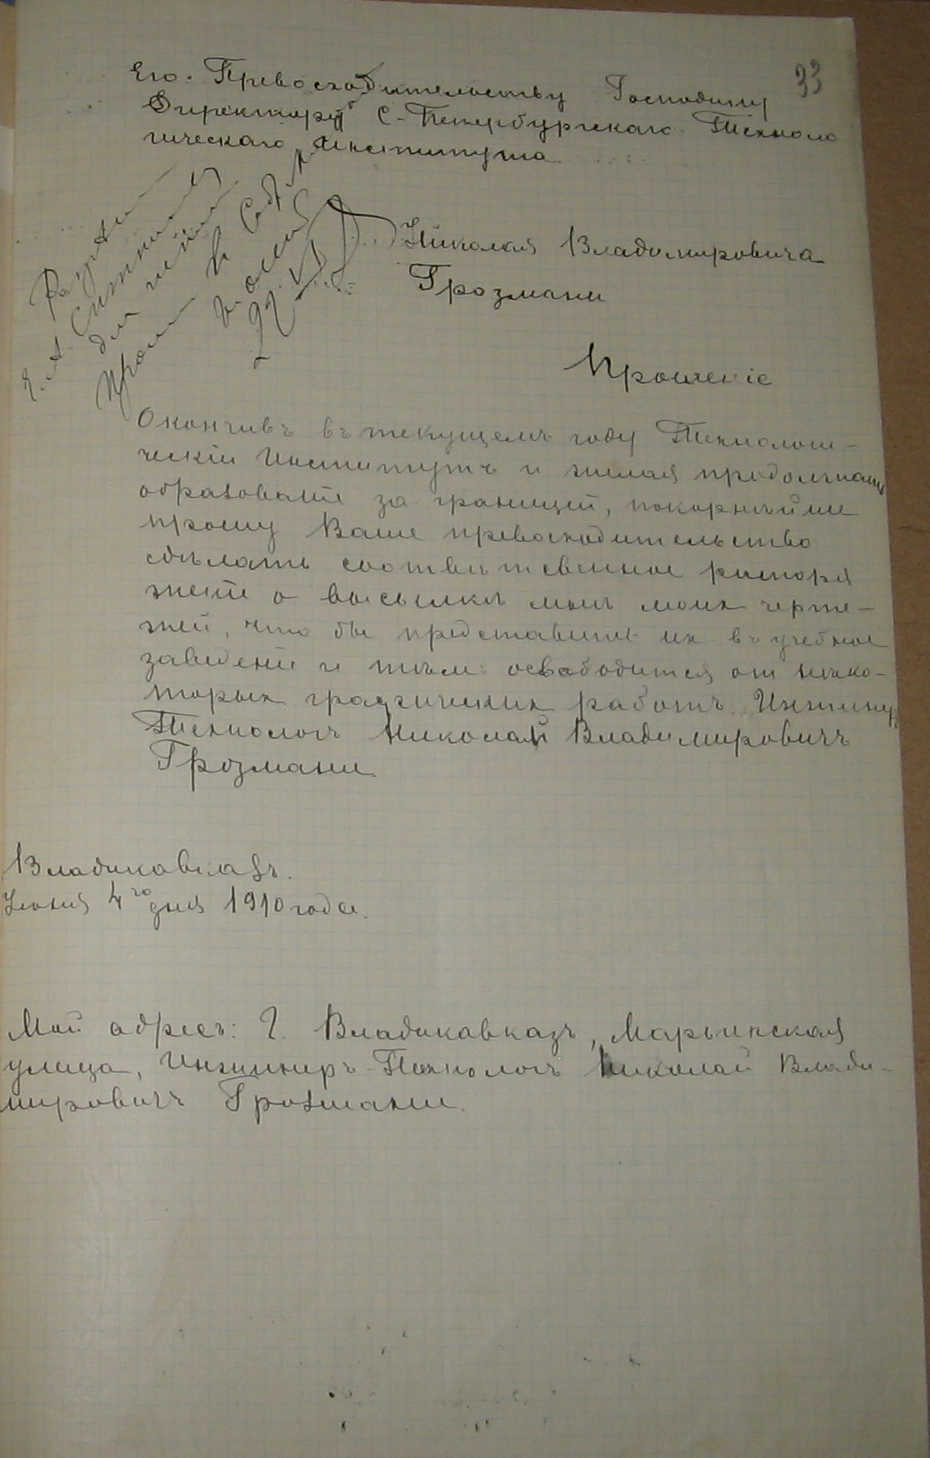 33
Его. Превосходительству Господину
Директору С-Петербургскаго Техноло
гическаго Института
Николая Владимировича
Грозмани
Прошеніе
Окончивъ въ текущемъ году Технологи-
ческій Институтъ и желая продолжать
образованіе за границей, покорнѣйше
прошу Ваше превосходительство
сдѣлать соотвѣтственное распоря
женіе о высылкѣ мнѣ моих черте-
жей, что бы представить их въ учебное
заведеніе и тѣмъ освободится от нѣко-
торых графических работъ. Инженер
Технологъ Николай Владимировичъ
Грозмани
Владикавказъ.
Іюня 4го дня 1910 года.
Мой адресъ: Г. Владикавказъ, Марьинская
улица, Инженеръ-Технологъ Николай Влади-
мировичъ Грозмани.